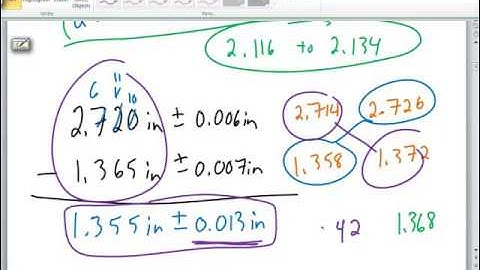 2.116 to 2.134
6 11 10
2.720 in ± 0.006in 2.714 2.726
- 1.365 in ± 0.007in 1.358 1.372
1.355 in ± 0.013 in . 42 1.368